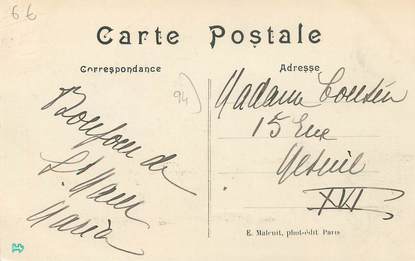 66
Carte Postale
Correspondance
Adresse
94
Bonjour de
St Maur
Maria
Madame Cousin
15 Rue
Mesnil
XVI
E. Malcuit, phot-édit Paris